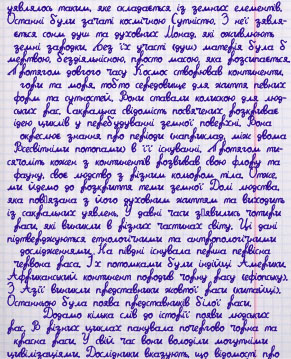 уявлялось таким, яке складається із земних елементів.
Останні були зачаті космічною Сутністю. З неї з'явля-
ється сонм душ та духовних Монад, які оживлюють
земні зародки. Без їх участі (душ) матерія була б
мертвою, бездіяльнісною, просто масою, яка розсипається.
Протягом довгого часу Космос створював континенти,
гори та моря, тобто середовище для життя певних
форм та сутностей. Вони ставали колискою для люд-
ських рас. Сакральна свідомість посвячених розкриває
ідею циклів у перебудуванні земної поверхні. Вона
окреслює знання про періоди (наприклад, між двома
Всесвітніми потопами) в її існуванні. Протягом ти-
сячоліть кожен з континентів розвивав свою флору та
фауну, своє людство з різним кольором тіла. Отже,
ми йдемо до розкриття теми земної Долі людства,
яка пов'язана з його духовним життям та виходить
із сакральних уявлень. У давні часи з'явились чотири
раси, які виникли в різних частинах світу. Ці дані
підтверджуються етнологічними та антропологічними
дослідженнями. На півдні існувала перша первісна
червона раса. Їх потомками були індійці Америки.
Африканський континент породив чорну расу (ефіопську).
З Азії виникли представники жовтої раси (китайці).
Останньою була поява представників білої раси.
Додамо кілька слів до історії появи людських
рас. В різних циклах панувала почергово чорна та
красна раси. У свій час вони володіли могутніми
цивілізаціями. Дослідники вказують, що відомості про